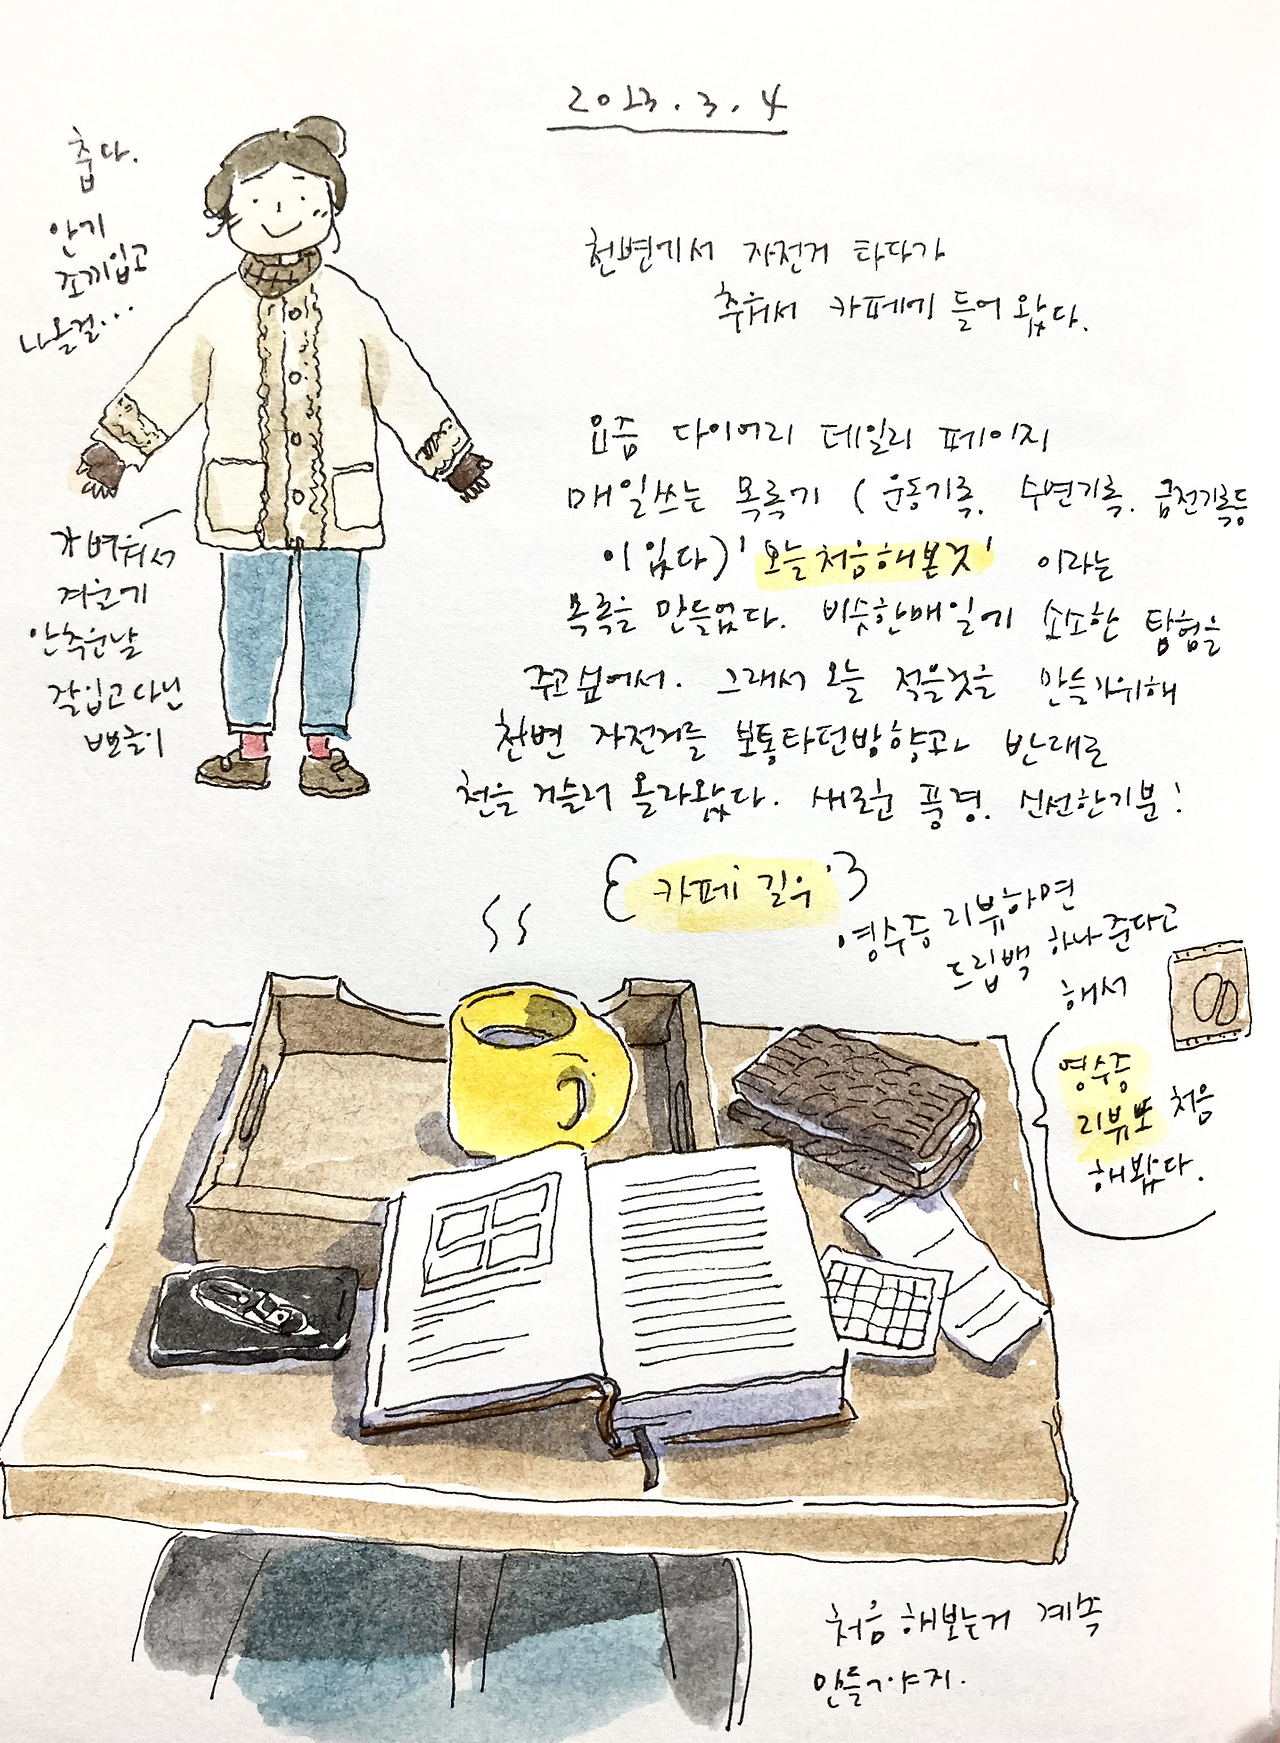 2023.3.4
춥다.
안에
조끼입고
나올걸...
천변에서 자전거 타다가
추워서 카페에 들어왔다.
요즘 다이어리 데일리 페이지
매일쓰는 목록에 (운동기록. 수면기록. 금전기록등
이 있다) '오늘처음해본것' 이라는
목록을 만들었다. 비슷한매일에 소소한 탐험을
주고싶어서. 그래서 오늘 적을것을 만들기위해
천변 자전거를 보통타던방향과 반대로
천을 거슬러 올라왔다. 새로운 풍경. 신선한기분!
가벼워서
겨울에
안추운날
잘입고다닌
뽀글이
카페 길우
영수증 리뷰하면
드립백 하나준다고
해서
영수증
리뷰또 처음
해봤다.
처음 해보는거 계속
만들어야지.